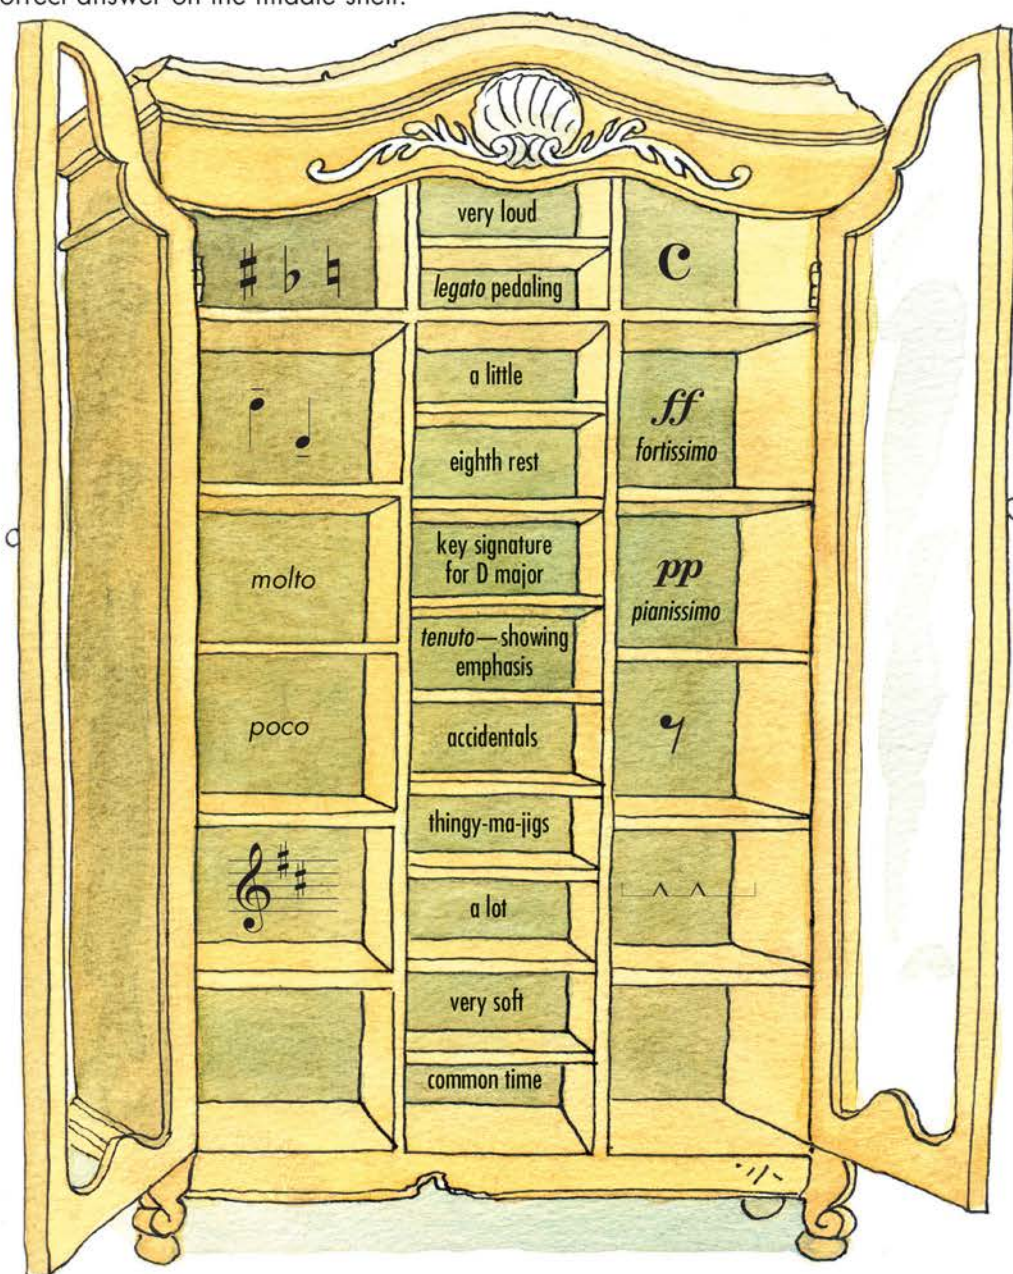 orrect answer on the middle shelf.
very loud
legato pedaling
a little
eighth rest
key signature
for D major
tenuto—showing
emphasis
accidentals
thingy-ma-jigs
a lot
very soft
common time
molto
poco
C
ff
fortissimo
pp
pianissimo